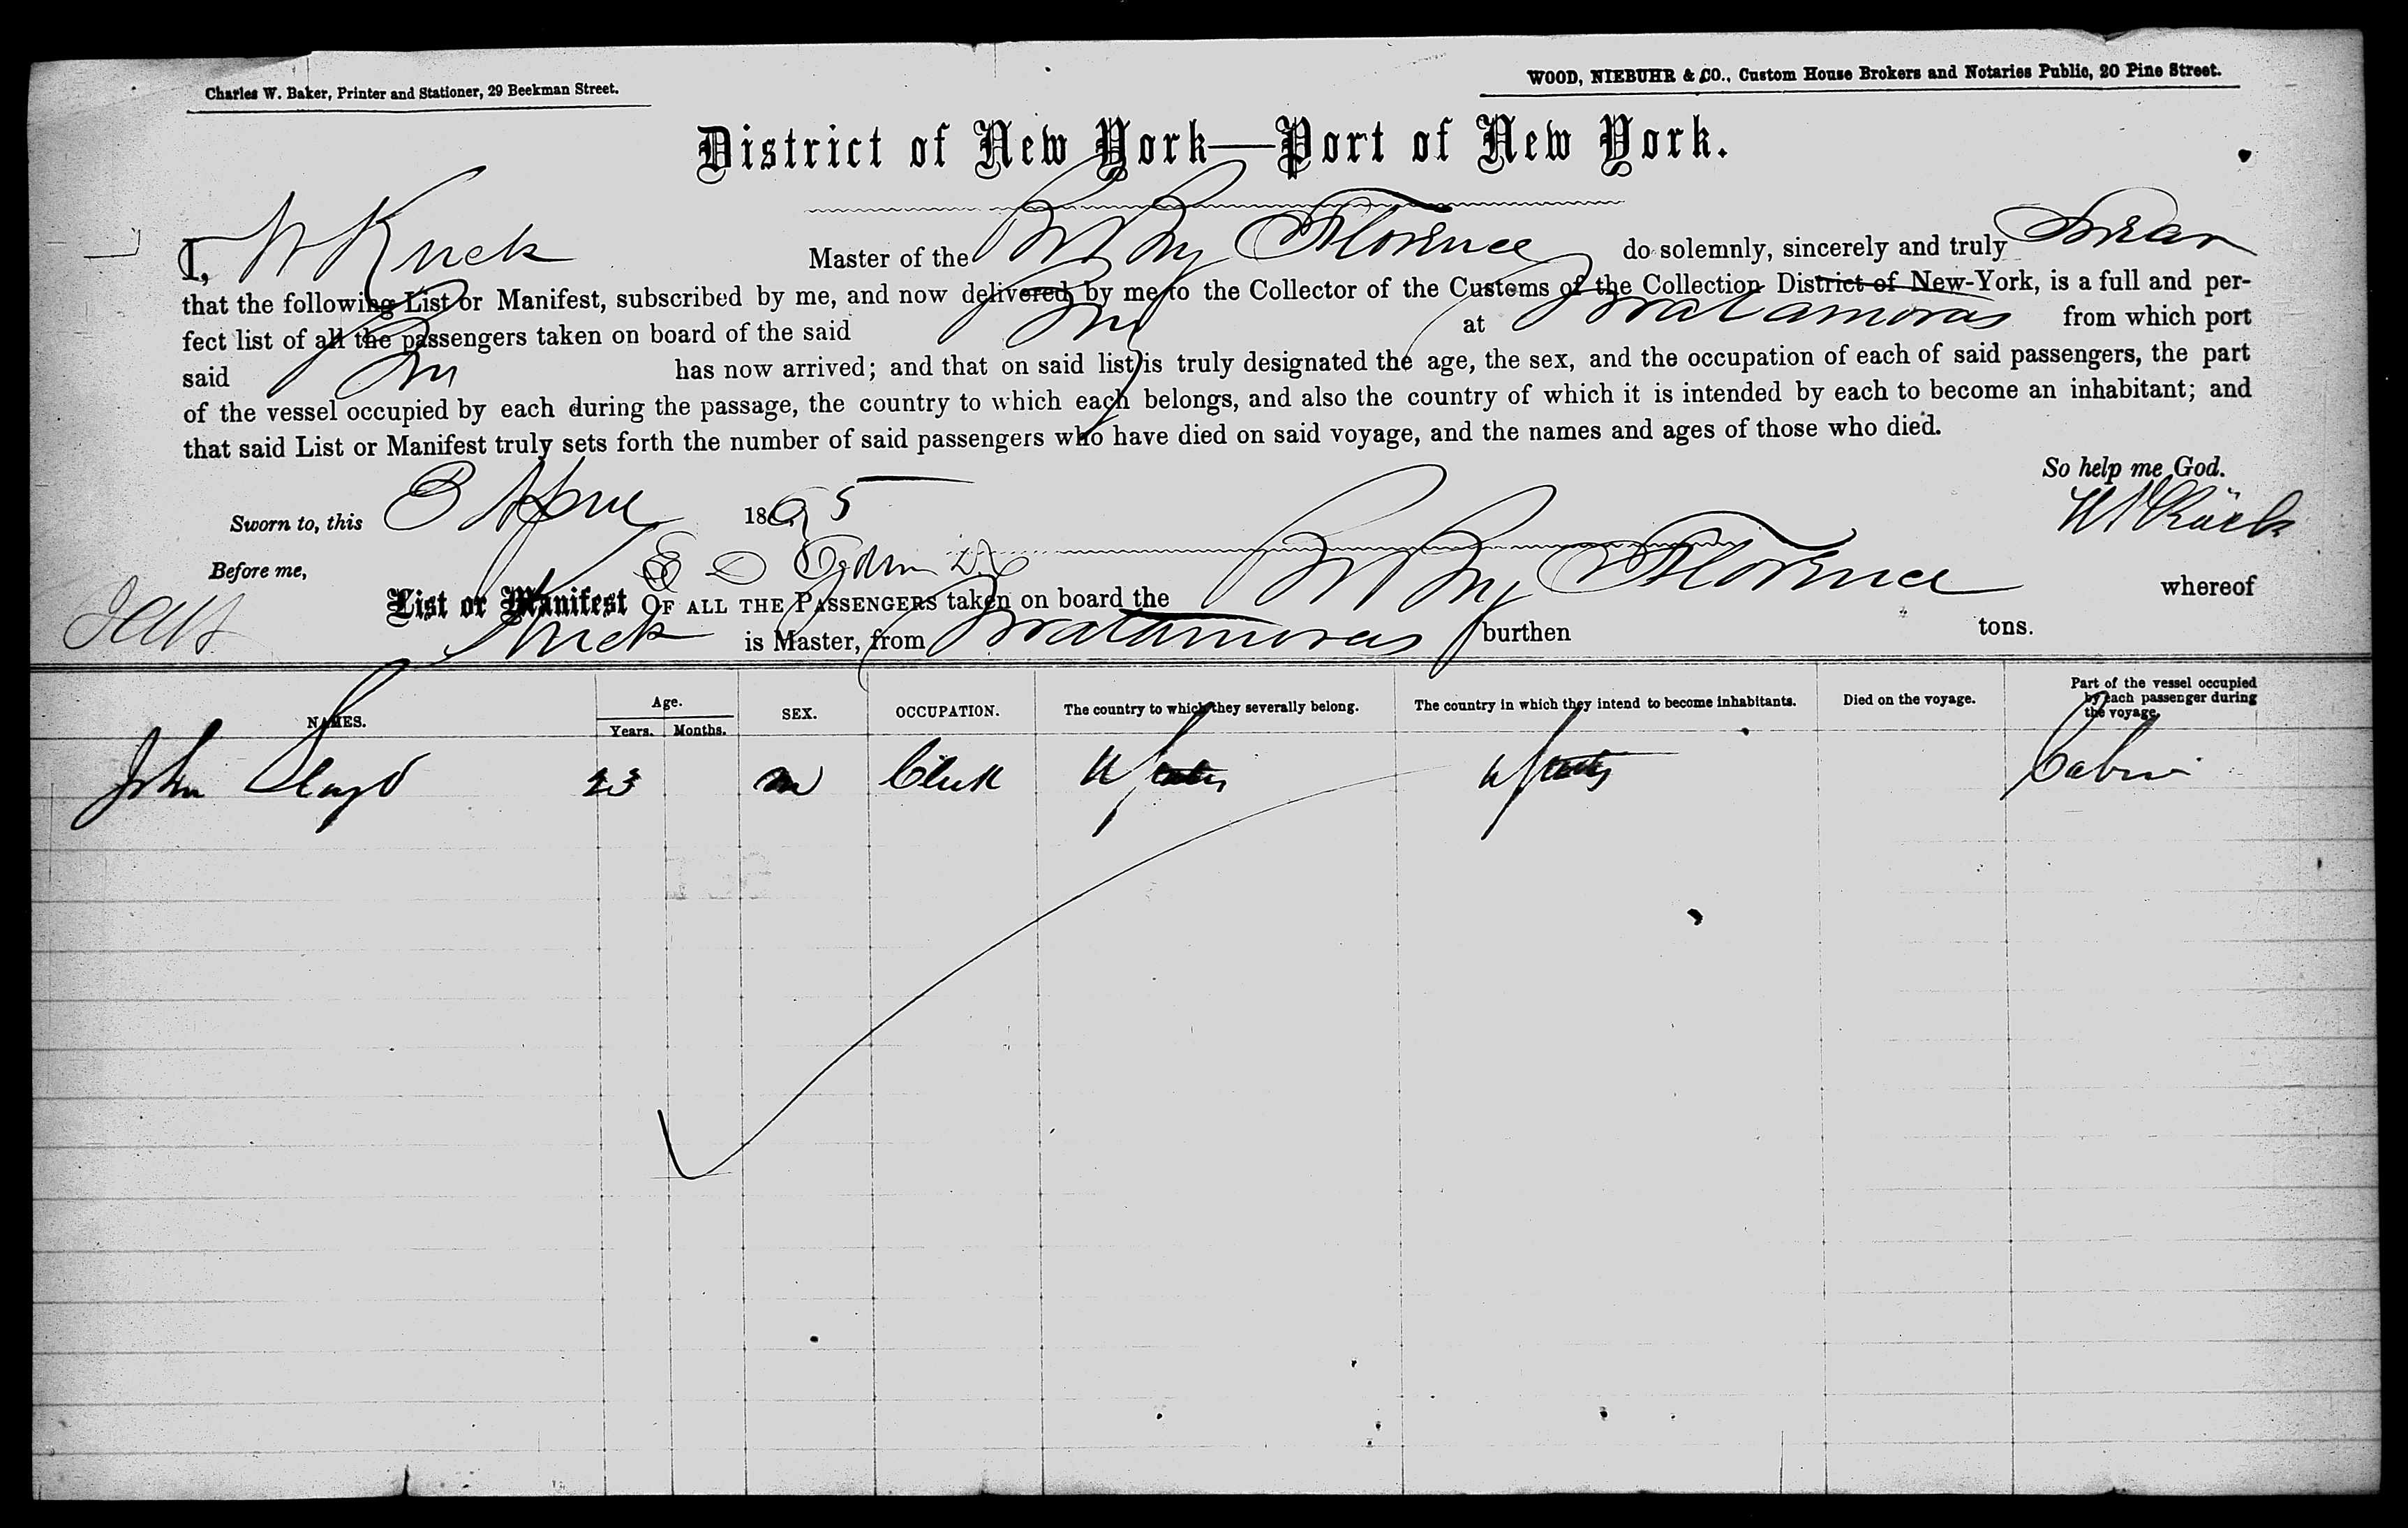 Charles W. Baker, Printer and Stationer, 29 Beekman Street.
WOOD, NIEBUHR & CO., Custom House Brokers and Notaries Public, 20 Pine Street.
District of New York—Port of New York.
I, W Kuck Master of the Br Brig Florence do solemnly, sincerely and truly Swear
that the following List or Manifest, subscribed by me, and now delivered by me to the Collector of the Customs of the Collection District of New-York, is a full and per-
fect list of all the passengers taken on board of the said Brig at Matamoras from which port
said Brig has now arrived; and that on said list is truly designated the age, the sex, and the occupation of each of said passengers, the part
of the vessel occupied by each during the passage, the country to which each belongs, and also the country of which it is intended by each to become an inhabitant; and
that said List or Manifest truly sets forth the number of said passengers who have died on said voyage, and the names and ages of those who died.
So help me God.
Sworn to, this 3 April 1865
Before me,
List or Manifest OF ALL THE PASSENGERS taken on board the Br Brig Florence whereof
Kuck is Master, from Matamoras burthen tons.
NAMES. Age. Years. Months. SEX. OCCUPATION. The country to which they severally belong. The country in which they intend to become inhabitants. Died on the voyage. Part of the vessel occupied by each passenger during the voyage.
John Lloyd 23 m Clerk U States U States Cabin